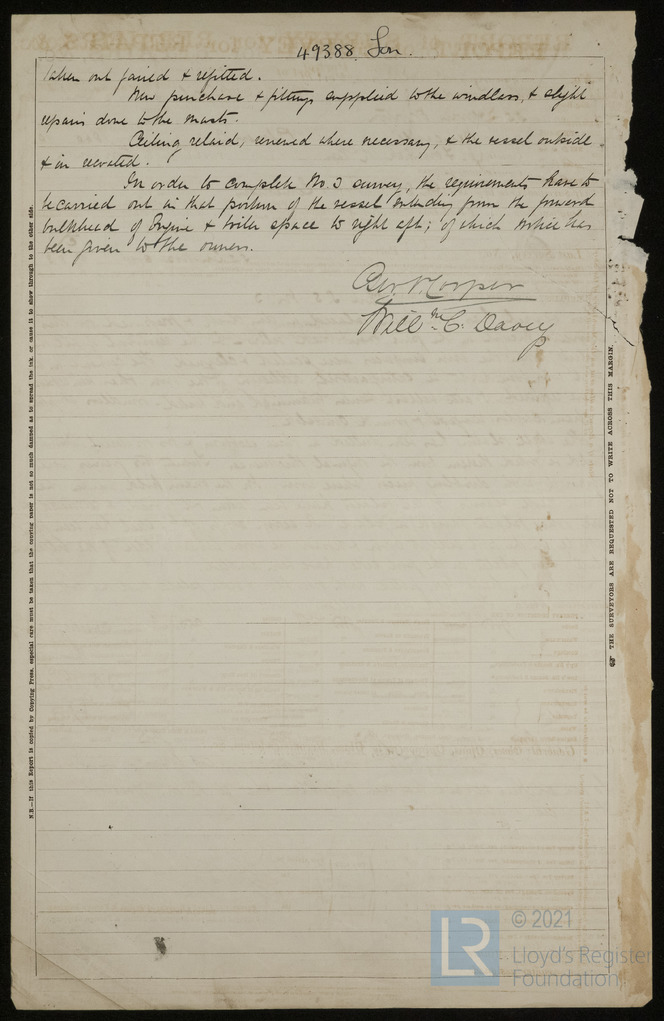 49388 Lon.
Taken out faired & refitted.
New purchase & fittings supplied to the windlass, & slight
repairs done to the masts.
Ceiling relaid, renewed where necessary, & the vessel outside
& in recoated.
In order to complete No. 3 survey, the requirements have to
be carried out in that portion of the vessel extending from the forward
bulkhead of Engine & boiler space to right aft; of which notice has
been given to the owners.
Geo. Cooper
Will.m C. Davey
N.B.—If this Report is copied by Copying Press, especial care must be taken that the copying paper is not so much damped as to spread the ink, or cause it to show through to the other side.
THE SURVEYORS ARE REQUESTED NOT TO WRITE ACROSS THIS MARGIN.
LR
© 2021
Lloyd's Register
Foundation